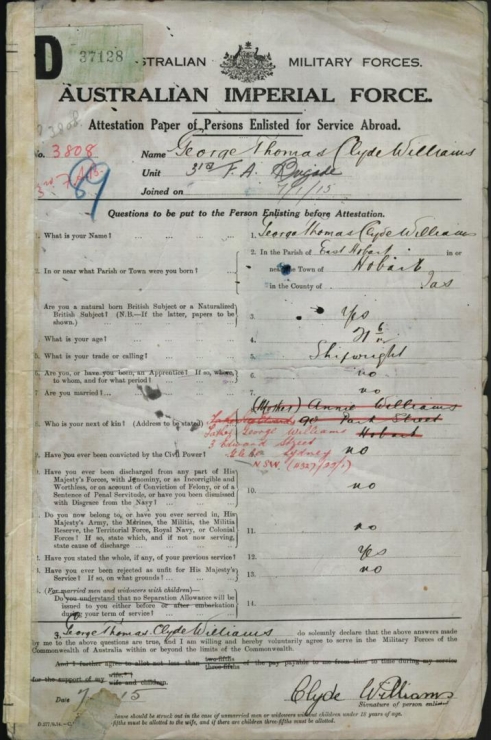 D
37128
STRALIAN MILITARY FORCES.
AUSTRALIAN IMPERIAL FORCE.
Attestation Paper of Persons Enlisted for Service Abroad.
No. 3808 Name George Thomas Clyde Williams
3rd F.A.B. Unit 3rd F.A. Brigade
89 Joined on 7/1/15
Questions to be put to the Person Enlisting before Attestation.
1. What is your Name? 1. George Thomas Clyde Williams
2. In or near what Parish or Town were you born? 2. In the Parish of East Hobart in or
near the Town of Hobart
in the County of Tas
Are you a natural born British Subject or a Naturalized British Subject? (N.B.—If the latter, papers to be shown.) 3. Yes
What is your age? 4. 21
What is your trade or calling? 5. Shipwright
Are you, or have you been, an Apprentice? If so, where, to whom, and for what period? 6. no
Are you married? 7. no
Who is your next of kin? (Address to be stated) (Mother) Annie Williams
90 Park Street
Hobart
Father George Williams
3 Edward Street
Glebe Sydney
N.S.W.
Have you ever been convicted by the Civil Power? no
Have you ever been discharged from any part of His Majesty's Forces, with Ignominy, or as Incorrigible and Worthless, or on account of Conviction of Felony, or of a Sentence of Penal Servitude, or have you been dismissed with Disgrace from the Navy? 10. no
Do you now belong to, or have you ever served in, His Majesty's Army, the Marines, the Militia, the Militia Reserve, the Territorial Force, Royal Navy, or Colonial Forces? If so, state which, and if not now serving, state cause of discharge 11. no
Have you stated the whole, if any, of your previous service? 12. Yes
Have you ever been rejected as unfit for His Majesty's Service? If so, on what grounds? 13. no
(For married men and widowers with children)—
Do you understand that no Separation Allowance will be issued to you either before or after embarkation during your term of service? 14.
I, George Thomas Clyde Williams do solemnly declare that the above answers made
by me to the above questions are true, and I am willing and hereby voluntarily agree to serve in the Military Forces of the
Commonwealth of Australia within or beyond the limits of the Commonwealth.
And I further agree to allot not less than two-fifths three-fifths of the pay payable to me from time to time during my service
for the support of my wife wife and children.
Date 7 15 Clyde Williams
Signature of person enlisted
should be struck out in the case of unmarried men or widowers without children under 18 years of age.
fifths must be allotted to the wife, and if there are children three-fifths must be allotted.